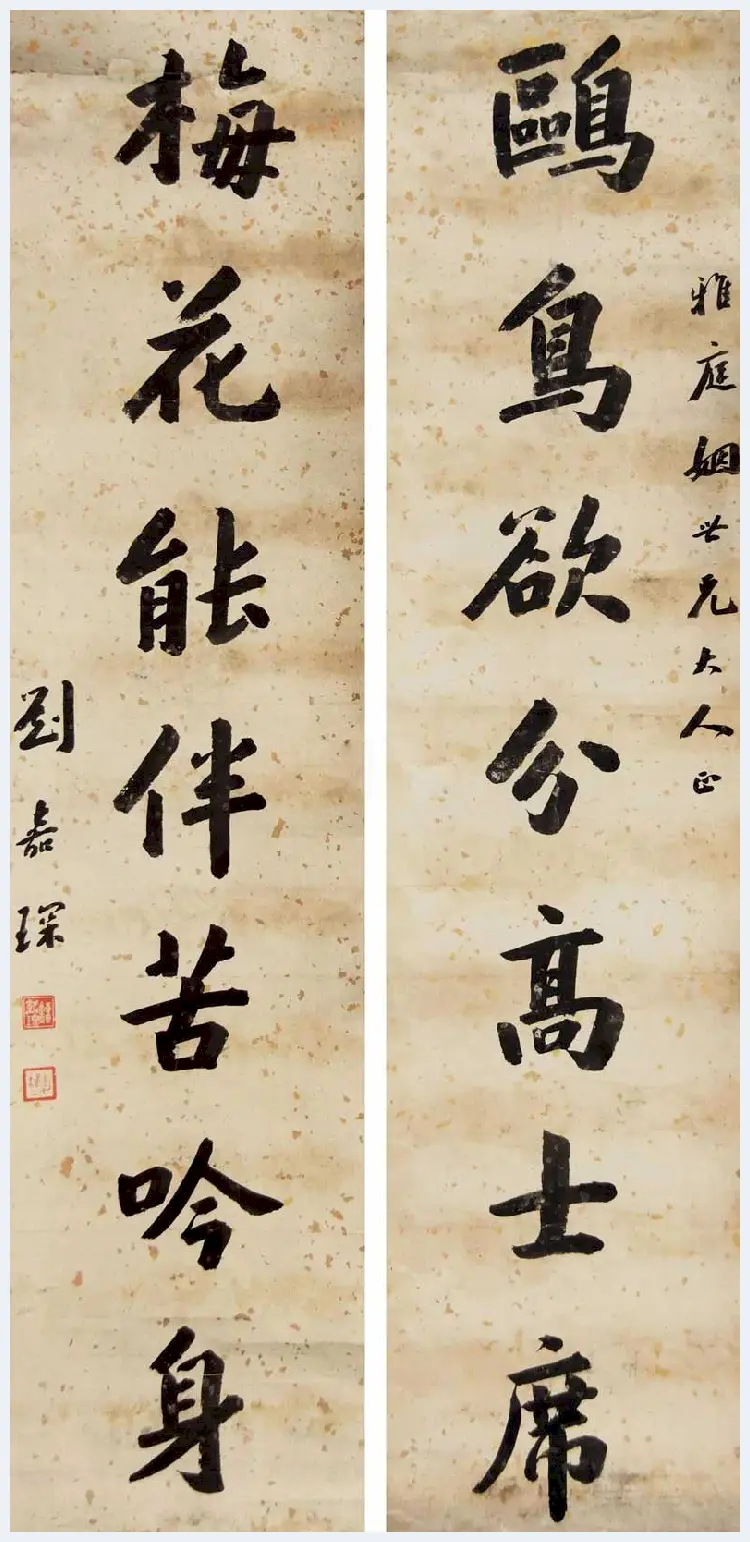 雅庭姻世兄大人正
鷗鳥欲分高士席
梅花能伴苦吟身
劉嘉琛